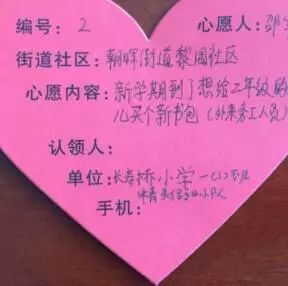 编号： 2 心愿人：
街道社区：朝晖街道黎园社区
心愿内容：新学期到了想给二年级
儿买个新书包（外来务工人员）
认领人：
单位：长寿桥小学一（1）班
小队
手机：